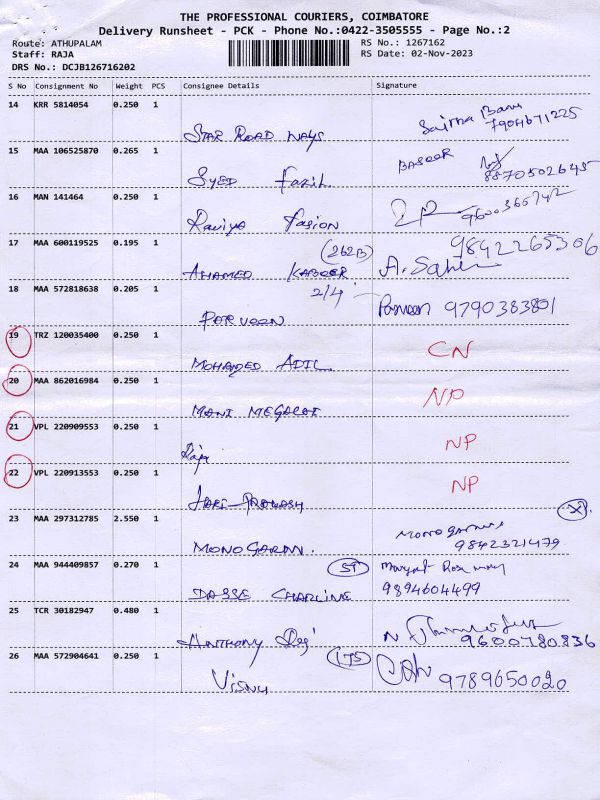 THE PROFESSIONAL COURIERS, COIMBATORE
Delivery Runsheet - PCK - Phone No.:0422-3505555 - Page No.:2
Route: ATHUPALAM RS No.: 1267162
Staff: RAJA RS Date: 02-Nov-2023
DRS No.: DCJB126716202
S No Consignment No Weight PCS Consignee Details Signature
14 KRR 5814054 0.250 1
STAR ROAD WAYS Saitha Banu 7904671225
15 MAA 106525870 0.265 1 BASEER
SYED Fazil 8870502645
16 MAN 141464 0.250 1
Raviya Fasion 9600366742
17 MAA 600119525 0.195 1 (262B) 9842265306
AHAMED KABEER A. Saher
18 MAA 572818638 0.205 1 2/4
PORVEEN Parveen 9790383801
19 TRZ 120035400 0.250 1 CN
MOHAMED ADIL
20 MAA 862016984 0.250 1 NP
MANI MEGALAI
21 VPL 220909553 0.250 1 NP
Raja
22 VPL 220913553 0.250 1 NP
HARI PRAKASH
23 MAA 297312785 2.550 1
MONOGARAN. 9842321479
24 MAA 944409857 0.270 1
DASSE CHARLINE 9894604499
25 TCR 30182947 0.480 1
ANTHONY Raj N 9600780836
26 MAA 572904641 0.250 1 175
VISNU 9789650020